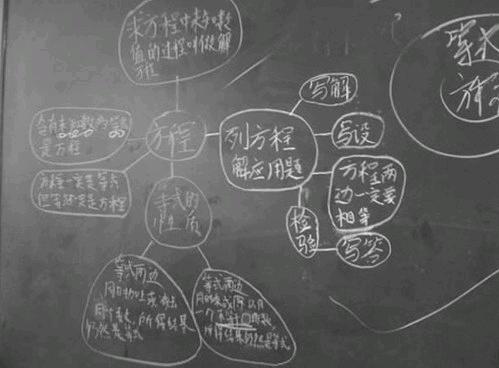 求方程中未知数
值的过程叫做解
方程
含有未知数的等式
是方程
方程一定是等式
但等式不一定是方程
方程
列方程
解应用题
写解
写设
方程两
边一定要
相等
检
验
写答
等式的
性质
等式两边
同时加上或减去
同一个数,所得结果
仍然是等式
等式两边
同时乘或除以同
一个不等于0的数,
所得结果仍然是等式